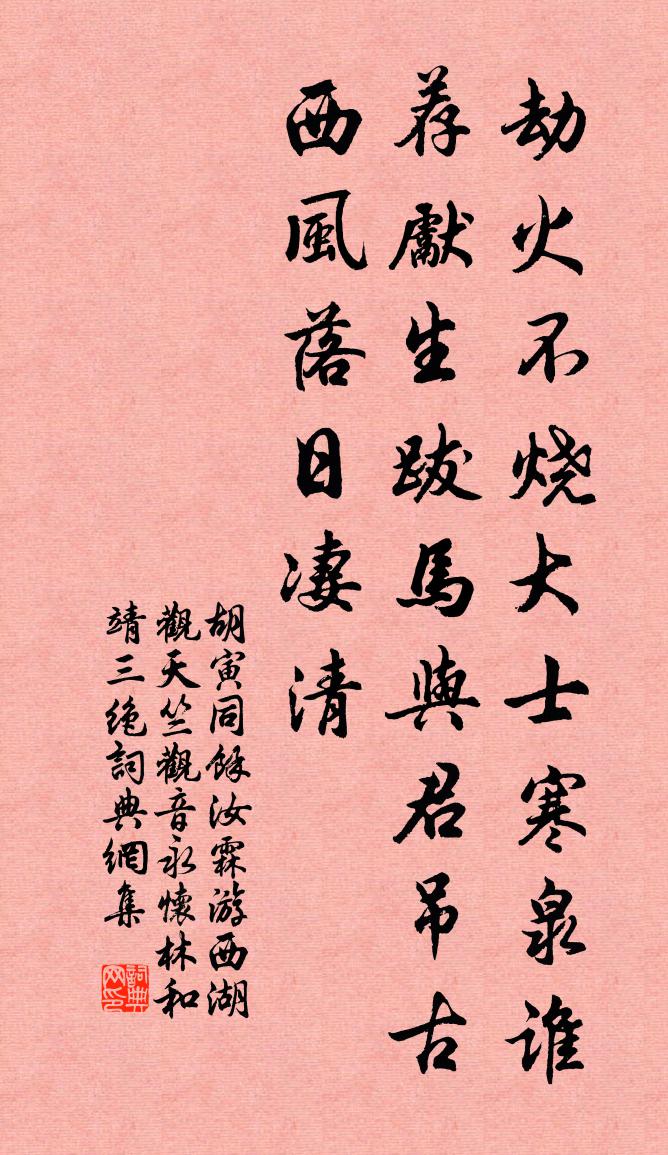 劫火不烧大士寒泉谁
荐獻生跋馬與君吊古
西風落日凄清
胡寅同餘汝霖游西湖
觀天竺觀音永懷林和
靖三绝詞典網集
詞典网印